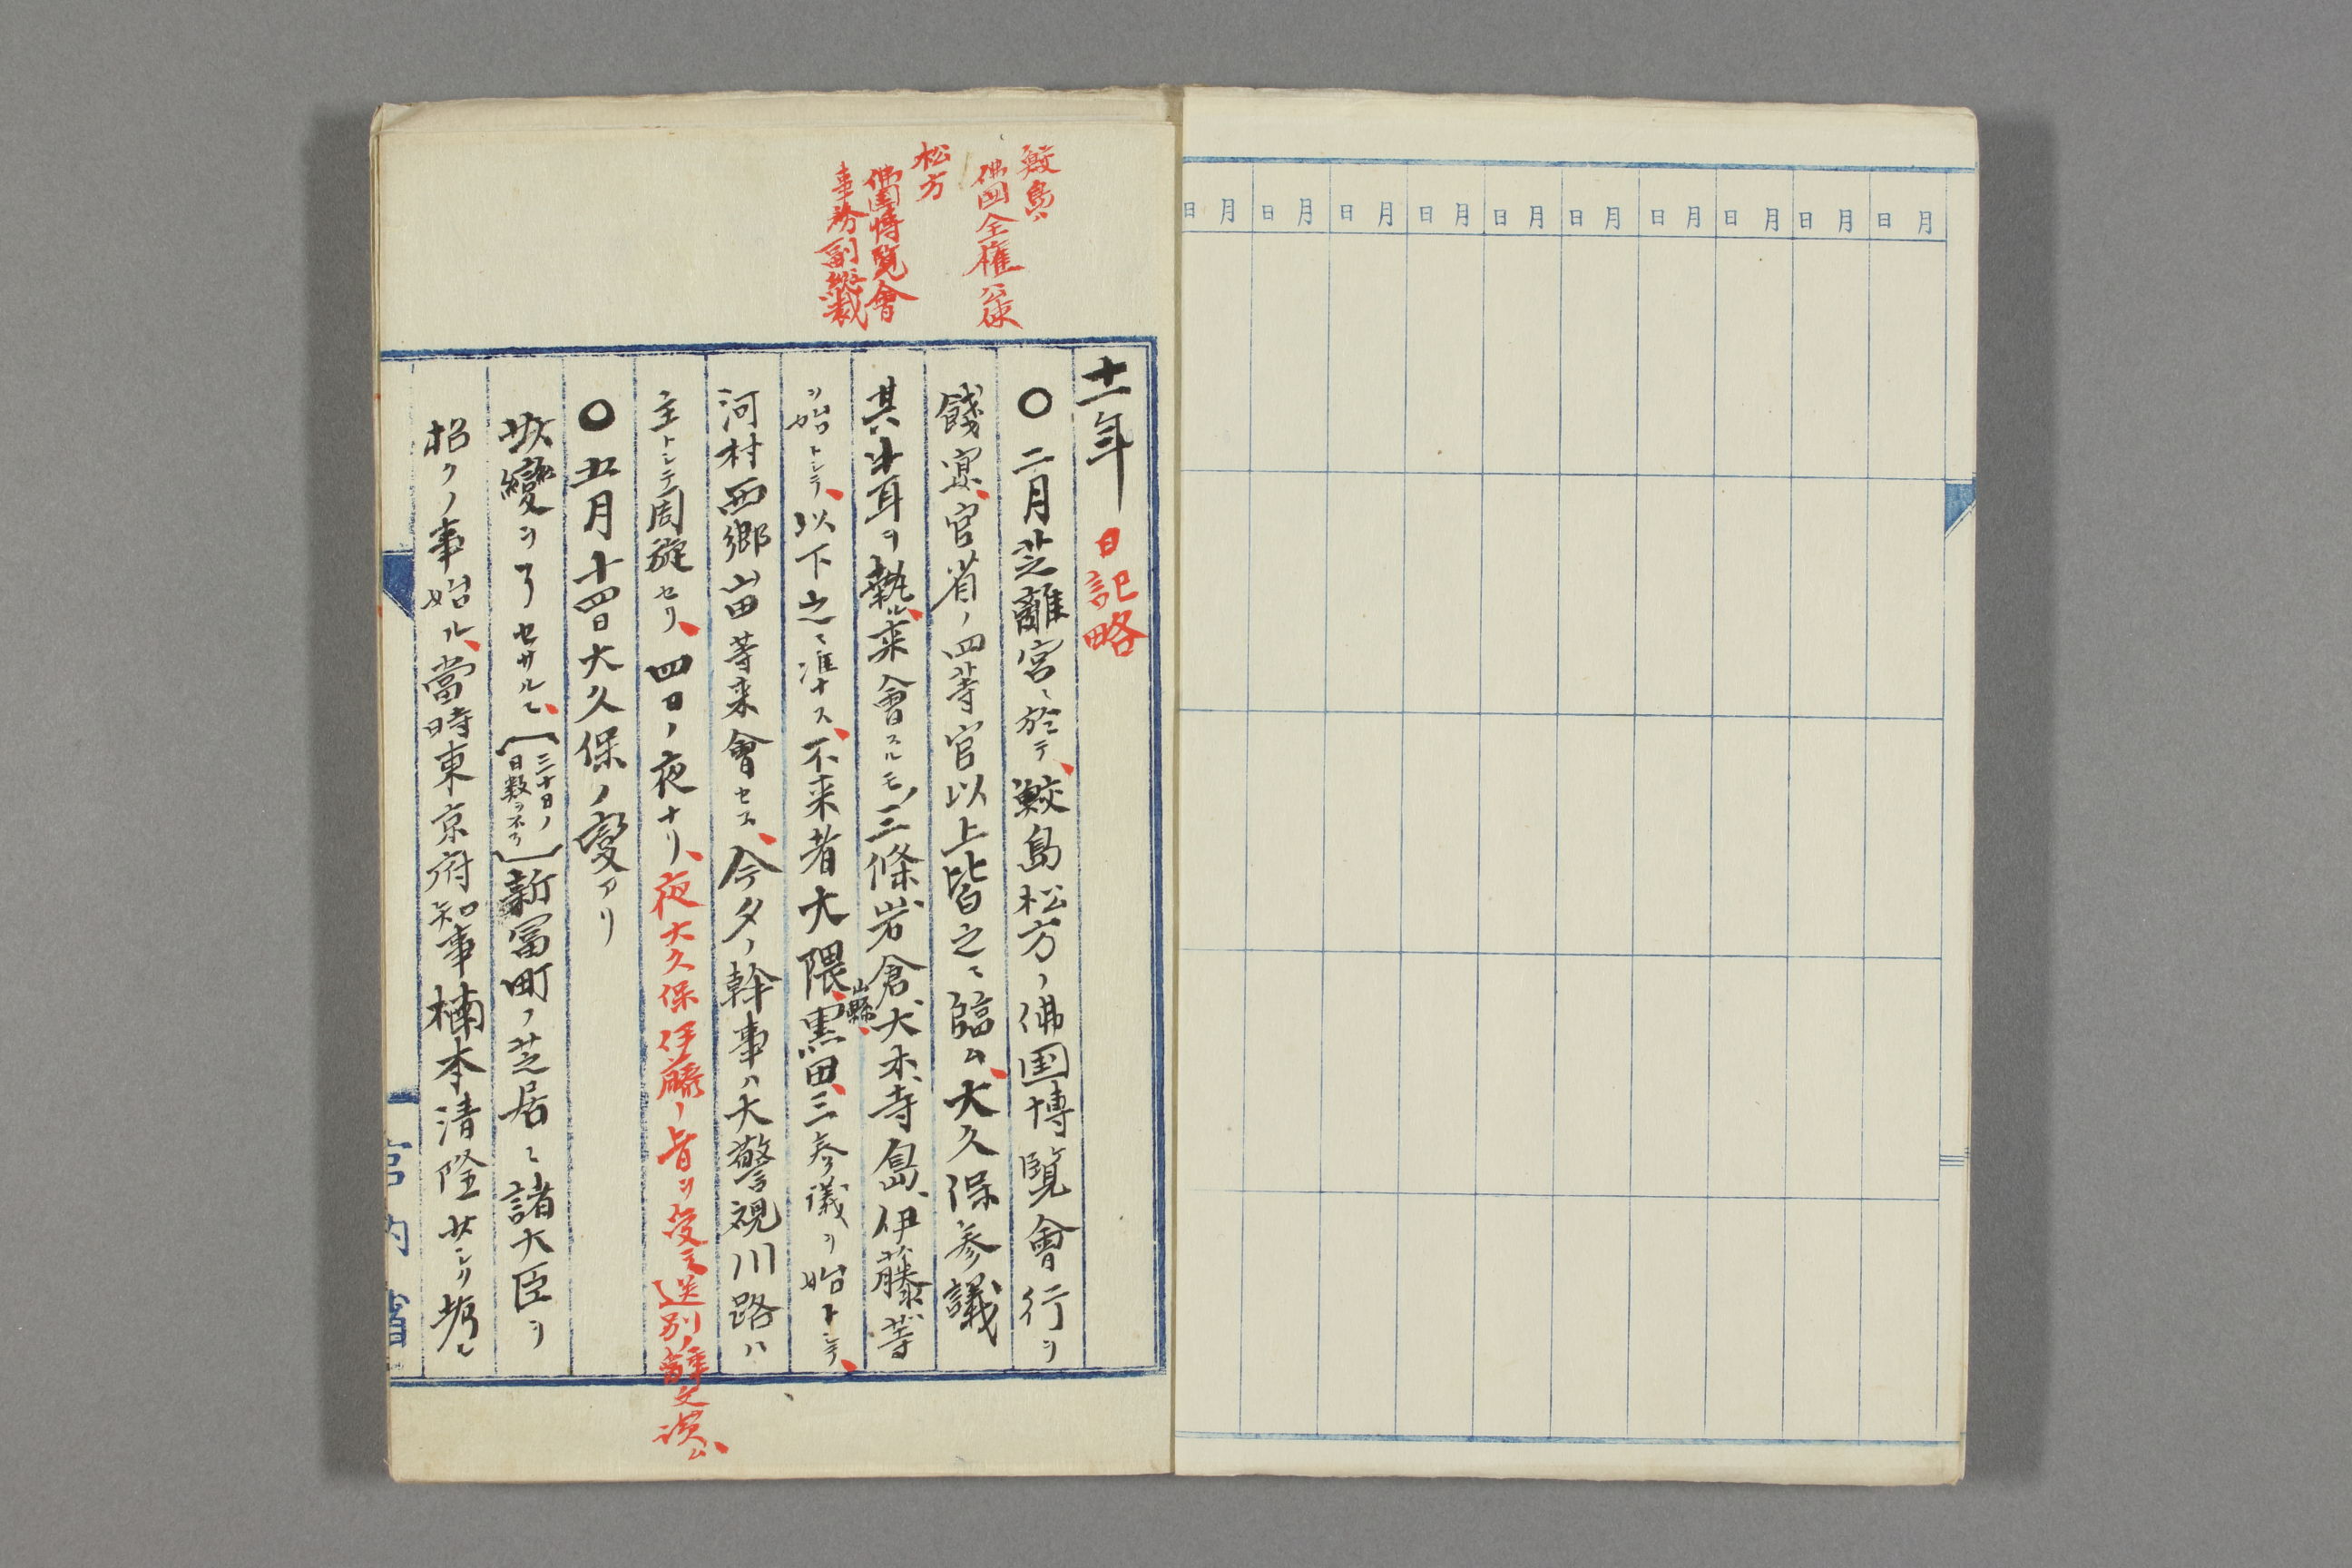 月日 月日 月日 月日 月日 月日 月日 月日 月日 月日
鮫島ハ
佛国全権公使
松方
佛国博覧會
事務副総裁
十一年 日記略
〇二月芝離宮ニ於テ、鮫島松方ノ佛国博覧會行ヲ
餞宴、官省ノ四等官以上皆之ニ臨ム、大久保参議
其牛耳ヲ執ル、来會スルモノ三條岩倉大木寺島、伊藤等
ヲ始トシテ、以下之ニ准ナス、不来者大隈、山縣、黒田、三参議ヲ始トシテ、
河村西郷山田等来會セス、今夕ノ幹事ハ大警視川路ハ
主トシテ周旋セリ、四日ノ夜ナリ、夜大久保伊藤ノ旨ヲ受テ送別ノ辞文演ム、
〇五月十四日大久保ノ變アリ
此變ヲ了セサル、[三十日ノ日数ヲ不了]新富町ノ芝居ニ諸大臣ヲ
招クノ事始ル、當時東京府知事楠本清隆
宮内省